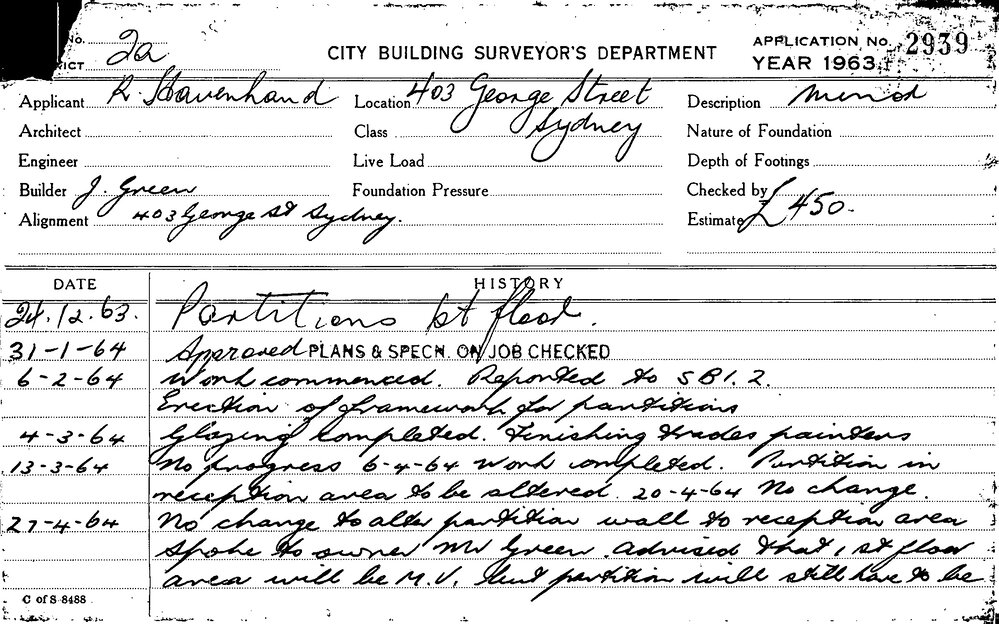 No. 2a
RICT
CITY BUILDING SURVEYOR'S DEPARTMENT
APPLICATION No. 2939
YEAR 1963
Applicant R Havenhand
Location 403 George Street
Sydney
Description Minor
Architect
Class
Nature of Foundation
Engineer
Live Load
Depth of Footings
Builder J. Green
Foundation Pressure
Checked by
Alignment 403 George St Sydney.
Estimate £450-
DATE HISTORY
24.12.63. Partitions 1st floor.
31-1-64 Approved PLANS & SPECN. ON JOB CHECKED
6-2-64 Work commenced. Reported to SBI. 2.
Erection of framework for partitions
4-3-64 Glazing completed. Finishing trades painters
13-3-64 No progress 6-4-64 Work completed. Partition in
reception area to be altered. 20-4-64 No change.
27-4-64 No change to alter partition wall to reception area
Spoke to owner Mr Green. Advised that 1st floor
area will be M.V. but partition will still have to be
C of S 8488